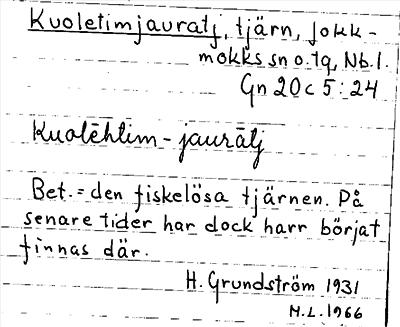 Kuoletimjauratj, tjärn, Jokk-
mokks sn o. tq, Nb.l.
Gn 20c 5:24
Kuolēhtim-jaurātj
Bet. = den fiskelösa tjärnen. På
senare tider har dock harr börjat
finnas där.
H. Grundström 1931
H.L. 1966